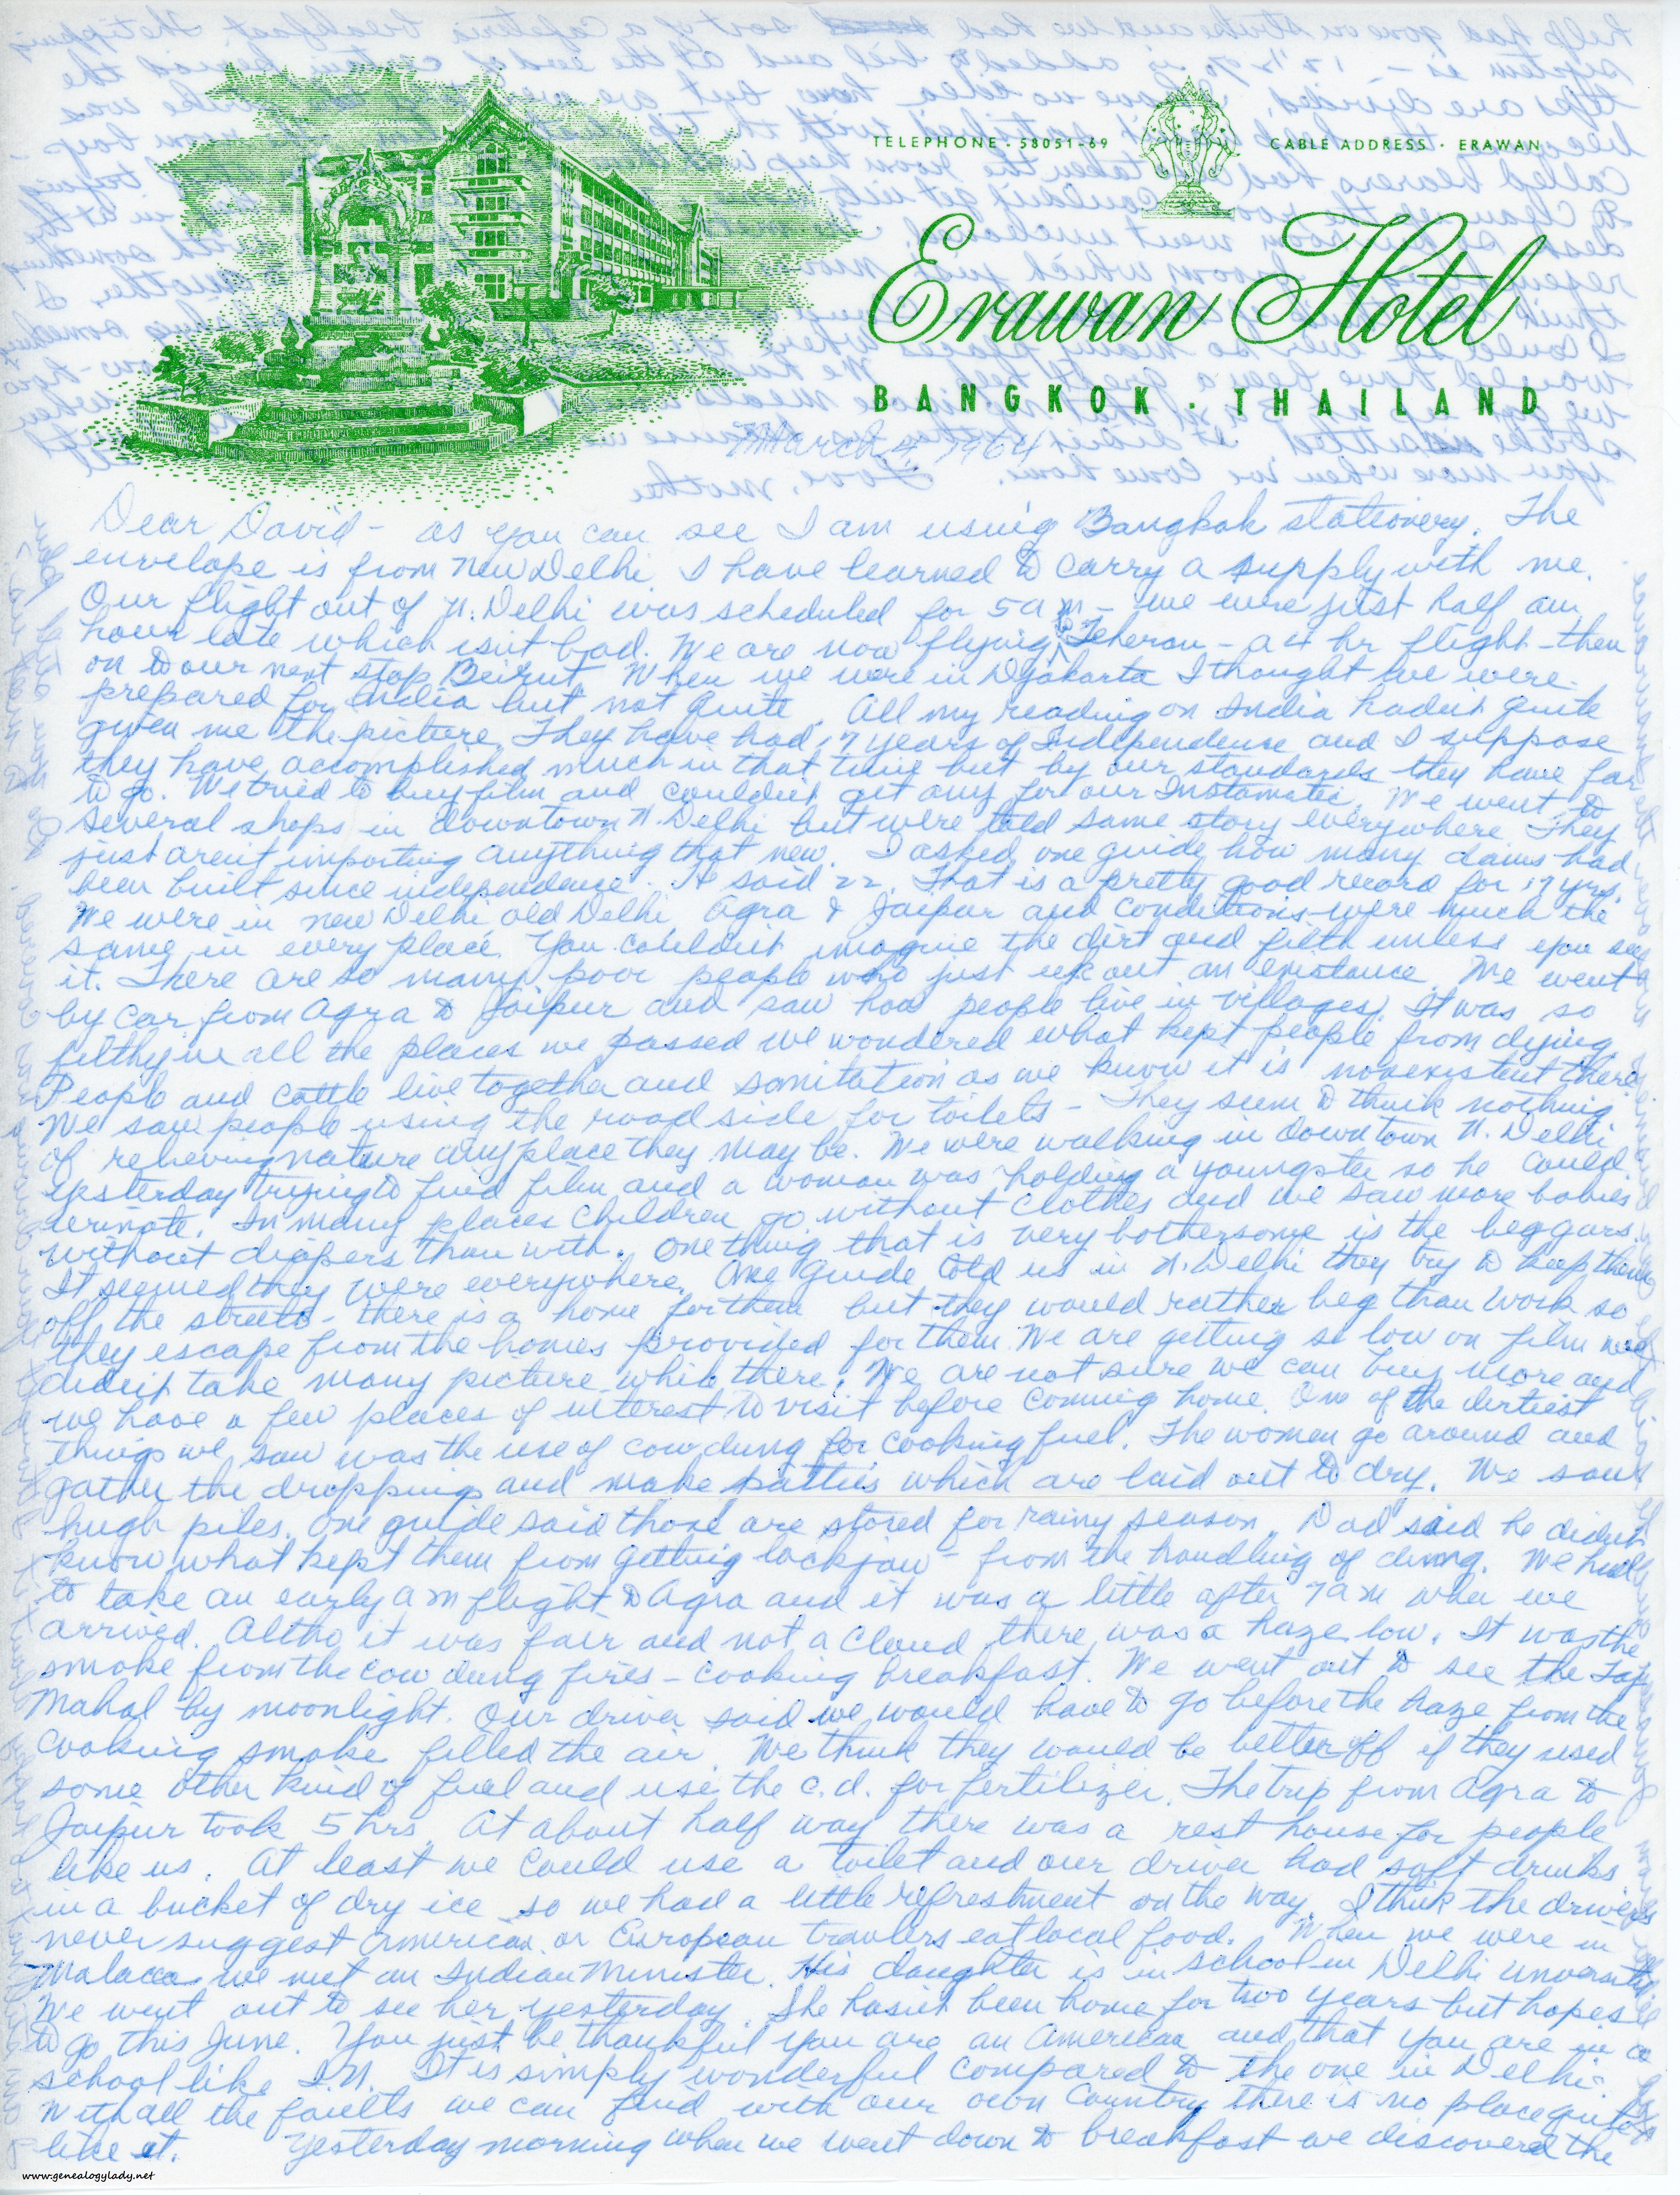 TELEPHONE · 58051-69
CABLE ADDRESS · ERAWAN
Erawan Hotel
BANGKOK · THAILAND
March 4, 1964
Dear David - as you can see I am using Bangkok stationery. The
envelope is from New Delhi. I have learned to carry a supply with me.
Our flight out of N. Delhi was scheduled for 5 am - we were just half an
hour late which isn't bad. We are now flying to Teheran - a 4 hr flight - then
on to our next stop Beirut. When we were in Djakarta I thought we were
prepared for India but not quite. All my reading on India hadn't quite
given me the picture. They have had 17 years of Independence and I suppose
they have accomplished much in that time but by our standards they have far
to go. We tried to buy film and couldn't get any for our Instamatic. We went to
several shops in downtown N. Delhi but were told same story everywhere They
just aren't importing anything that new. I asked one guide how many dams had
been built since independence. He said 22. That is a pretty good record for 17 yrs.
We were in New Delhi old Delhi, Agra & Jaipur and conditions were much the
same in every place. You couldn't imagine the dirt and filth unless you see
it. There are so many poor people who just ek out an existance. We went
by car from Agra to Jaipur and saw how people live in villages. It was so
filthy in all the places we passed we wondered what kept people from dying.
People and cattle live together and sanitation as we know it is nonexistent there.
We saw people using the road side for toilets - They seem to think nothing
of relieving nature anyplace they may be. We were walking in downtown N. Delhi
yesterday trying to find film and a woman was holding a youngster so he could
urinate. In many places children go without clothes and we saw more babies
without diapers than with. One thing that is very bothersome is the beggars.
It seemed they were everywhere. One guide told us in N. Delhi they try to keep them
off the streets - there is a home for them but they would rather beg than work so
they escape from the homes provided for them. We are getting so low on film we
didn't take many picture while there. We are not sure we can buy more and
we have a few places of interest to visit before coming home. One of the dirtiest
things we saw was the use of cow dung for cooking fuel. The women go around and
gather the droppings and make patties which are laid out to dry. We saw
hugh piles. One guide said those are stored for rainy season. Dad said he didn't
know what kept them from getting lockjaw - from the handling of dung. We had
to take an early am flight to Agra and it was a little after 7 am when we
arrived. Altho it was fair and not a cloud there was a haze low. It was the
smoke from the cow dung fires - cooking breakfast. We went out to see the Taj
Mahal by moonlight. Our driver said we would have to go before the haze from the
cooking smoke filled the air. We think they would be better off if they used
some other kind of fuel and use the c.d. for fertilizer. The trip from Agra to
Jaipur took 5 hrs. At about half way there was a rest house for people
like us. At least we could use a toilet and our driver had soft drinks
in a bucket of dry ice so we had a little refreshment on the way. I think the drivers
never suggest American or European travlers eat local food. When we were in
Malacca we met an Indian Minister. His daughter is in school in Delhi University.
We went out to see her yesterday. She hasn't been home for two years but hopes
to go this June. You just be thankful you are an American and that you are in a
school like I.U. It is simply wonderful compared to the one in Delhi.
With all the faults we can find with our own Country there is no place quite
like it. Yesterday morning when we went down to breakfast we discovered the
www.genealogylady.net